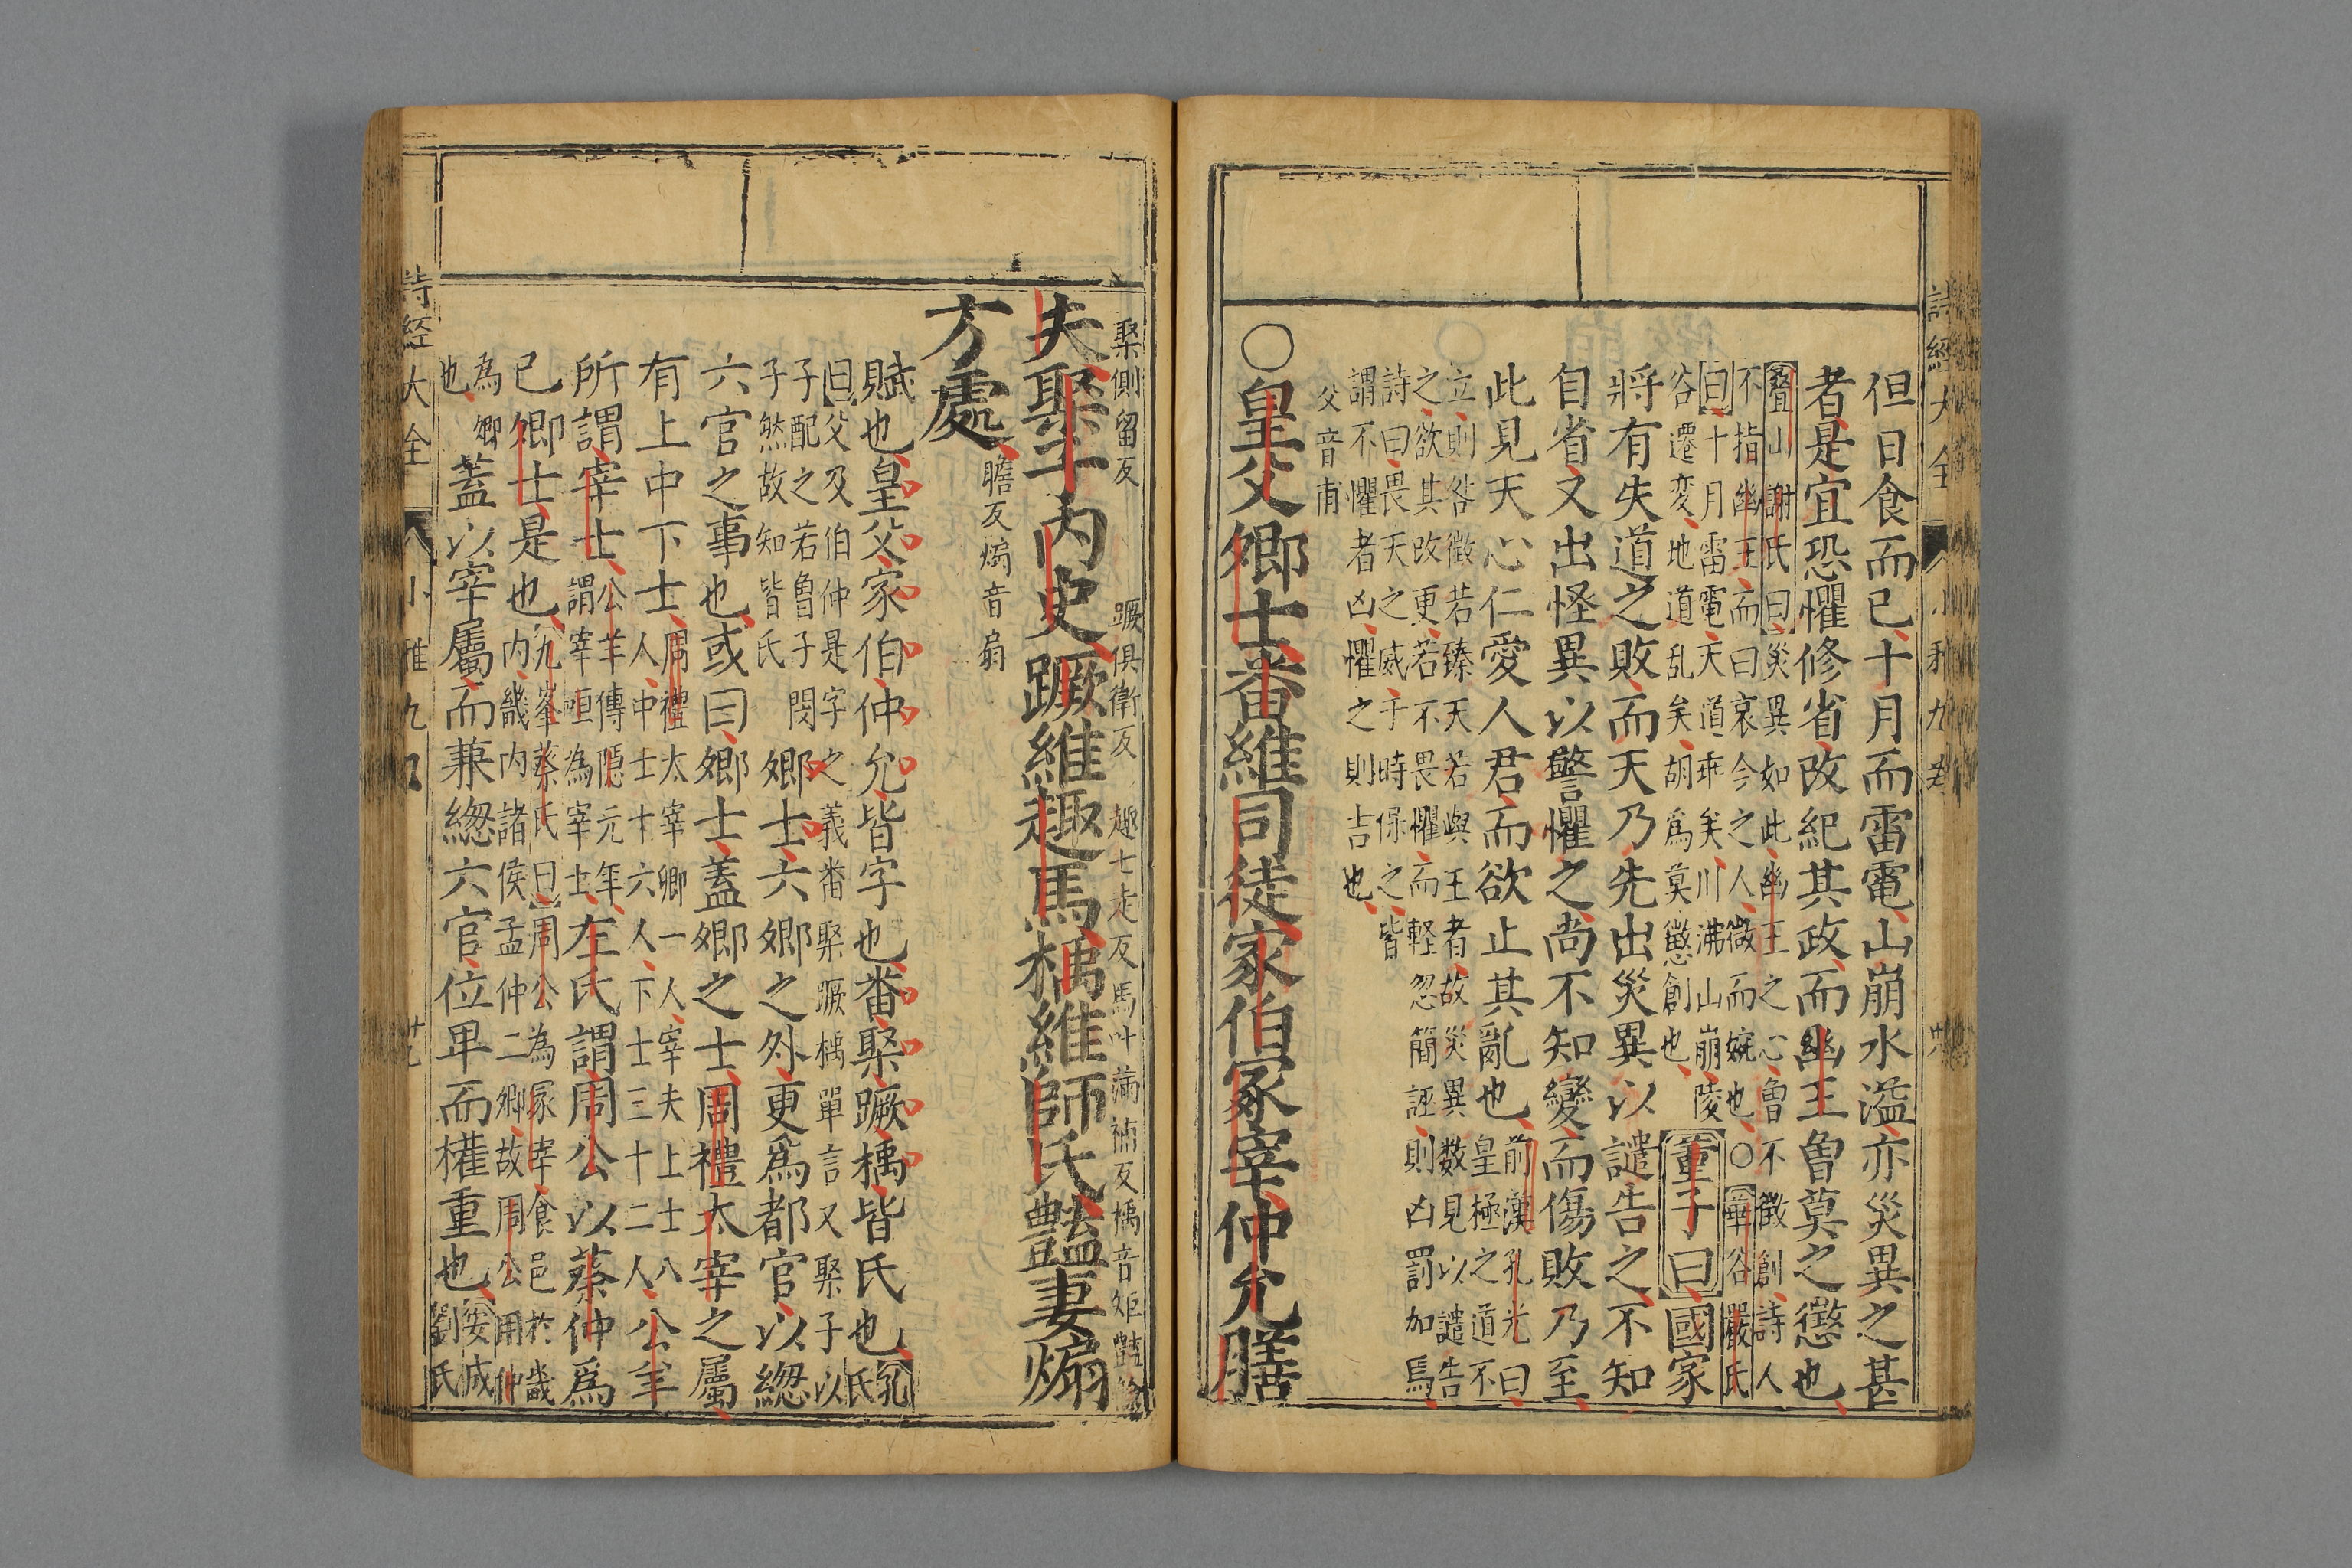 詩經大全 小雅九卷
但日食而已十月而雷電山崩水溢亦災異之甚
者是宜恐懼修省改紀其政而幽王曾莫之懲也
疊山謝氏曰災異如此幽王之心曾不徵創詩人
不指幽王而曰哀今之人微而婉也○華谷嚴氏
曰十月雷電天道乖矣川沸山崩陵
谷遷変地道乱矣胡爲莫懲創也
董子曰國家
將有失道之敗而天乃先出災異以譴告之不知
自省又出怪異以警懼之尚不知變而傷敗乃至
此見天心仁愛人君而欲止其亂也
前漢孔光曰
皇極之道不
立則咎徵若臻天若與王者故災異数見以譴告
之欲其改更若不畏懼而輕忽簡誣則凶罰加焉
詩曰畏天之威于時保之皆
謂不懼者凶懼之則吉也
父音甫
○皇父卿士番維司徒家伯冢宰仲允膳
聚側留反 蹶俱衛反 趣七走反馬叶滿補反楀音矩豔
夫聚子內史蹶維趣馬楀維師氏豔妻煽
方處
瞻反煽音扇
賦也皇父家伯仲允皆字也番聚蹶楀皆氏也
孔氏
曰父及伯仲是字之義番聚蹶楀單言又聚子以
子配之若魯子閔
子然故知皆氏
卿士六卿之外更爲都官以總
六官之事也或曰卿士蓋卿之士周禮太宰之屬
有上中下士
周禮太宰卿一人宰夫上士八
人中士十六人下士三十二人
公羊
所謂宰士
公羊傳隱元年
謂宰咺為宰士
左氏謂周公以蔡仲爲
已卿士是也
九峯蔡氏曰周公為冢宰食邑於畿
内畿内諸侯孟仲二卿故周公用仲
為卿
也
蓋以宰屬而兼總六官位卑而權重也
安成
劉氏
詩經大全 小雅九卷 廿九